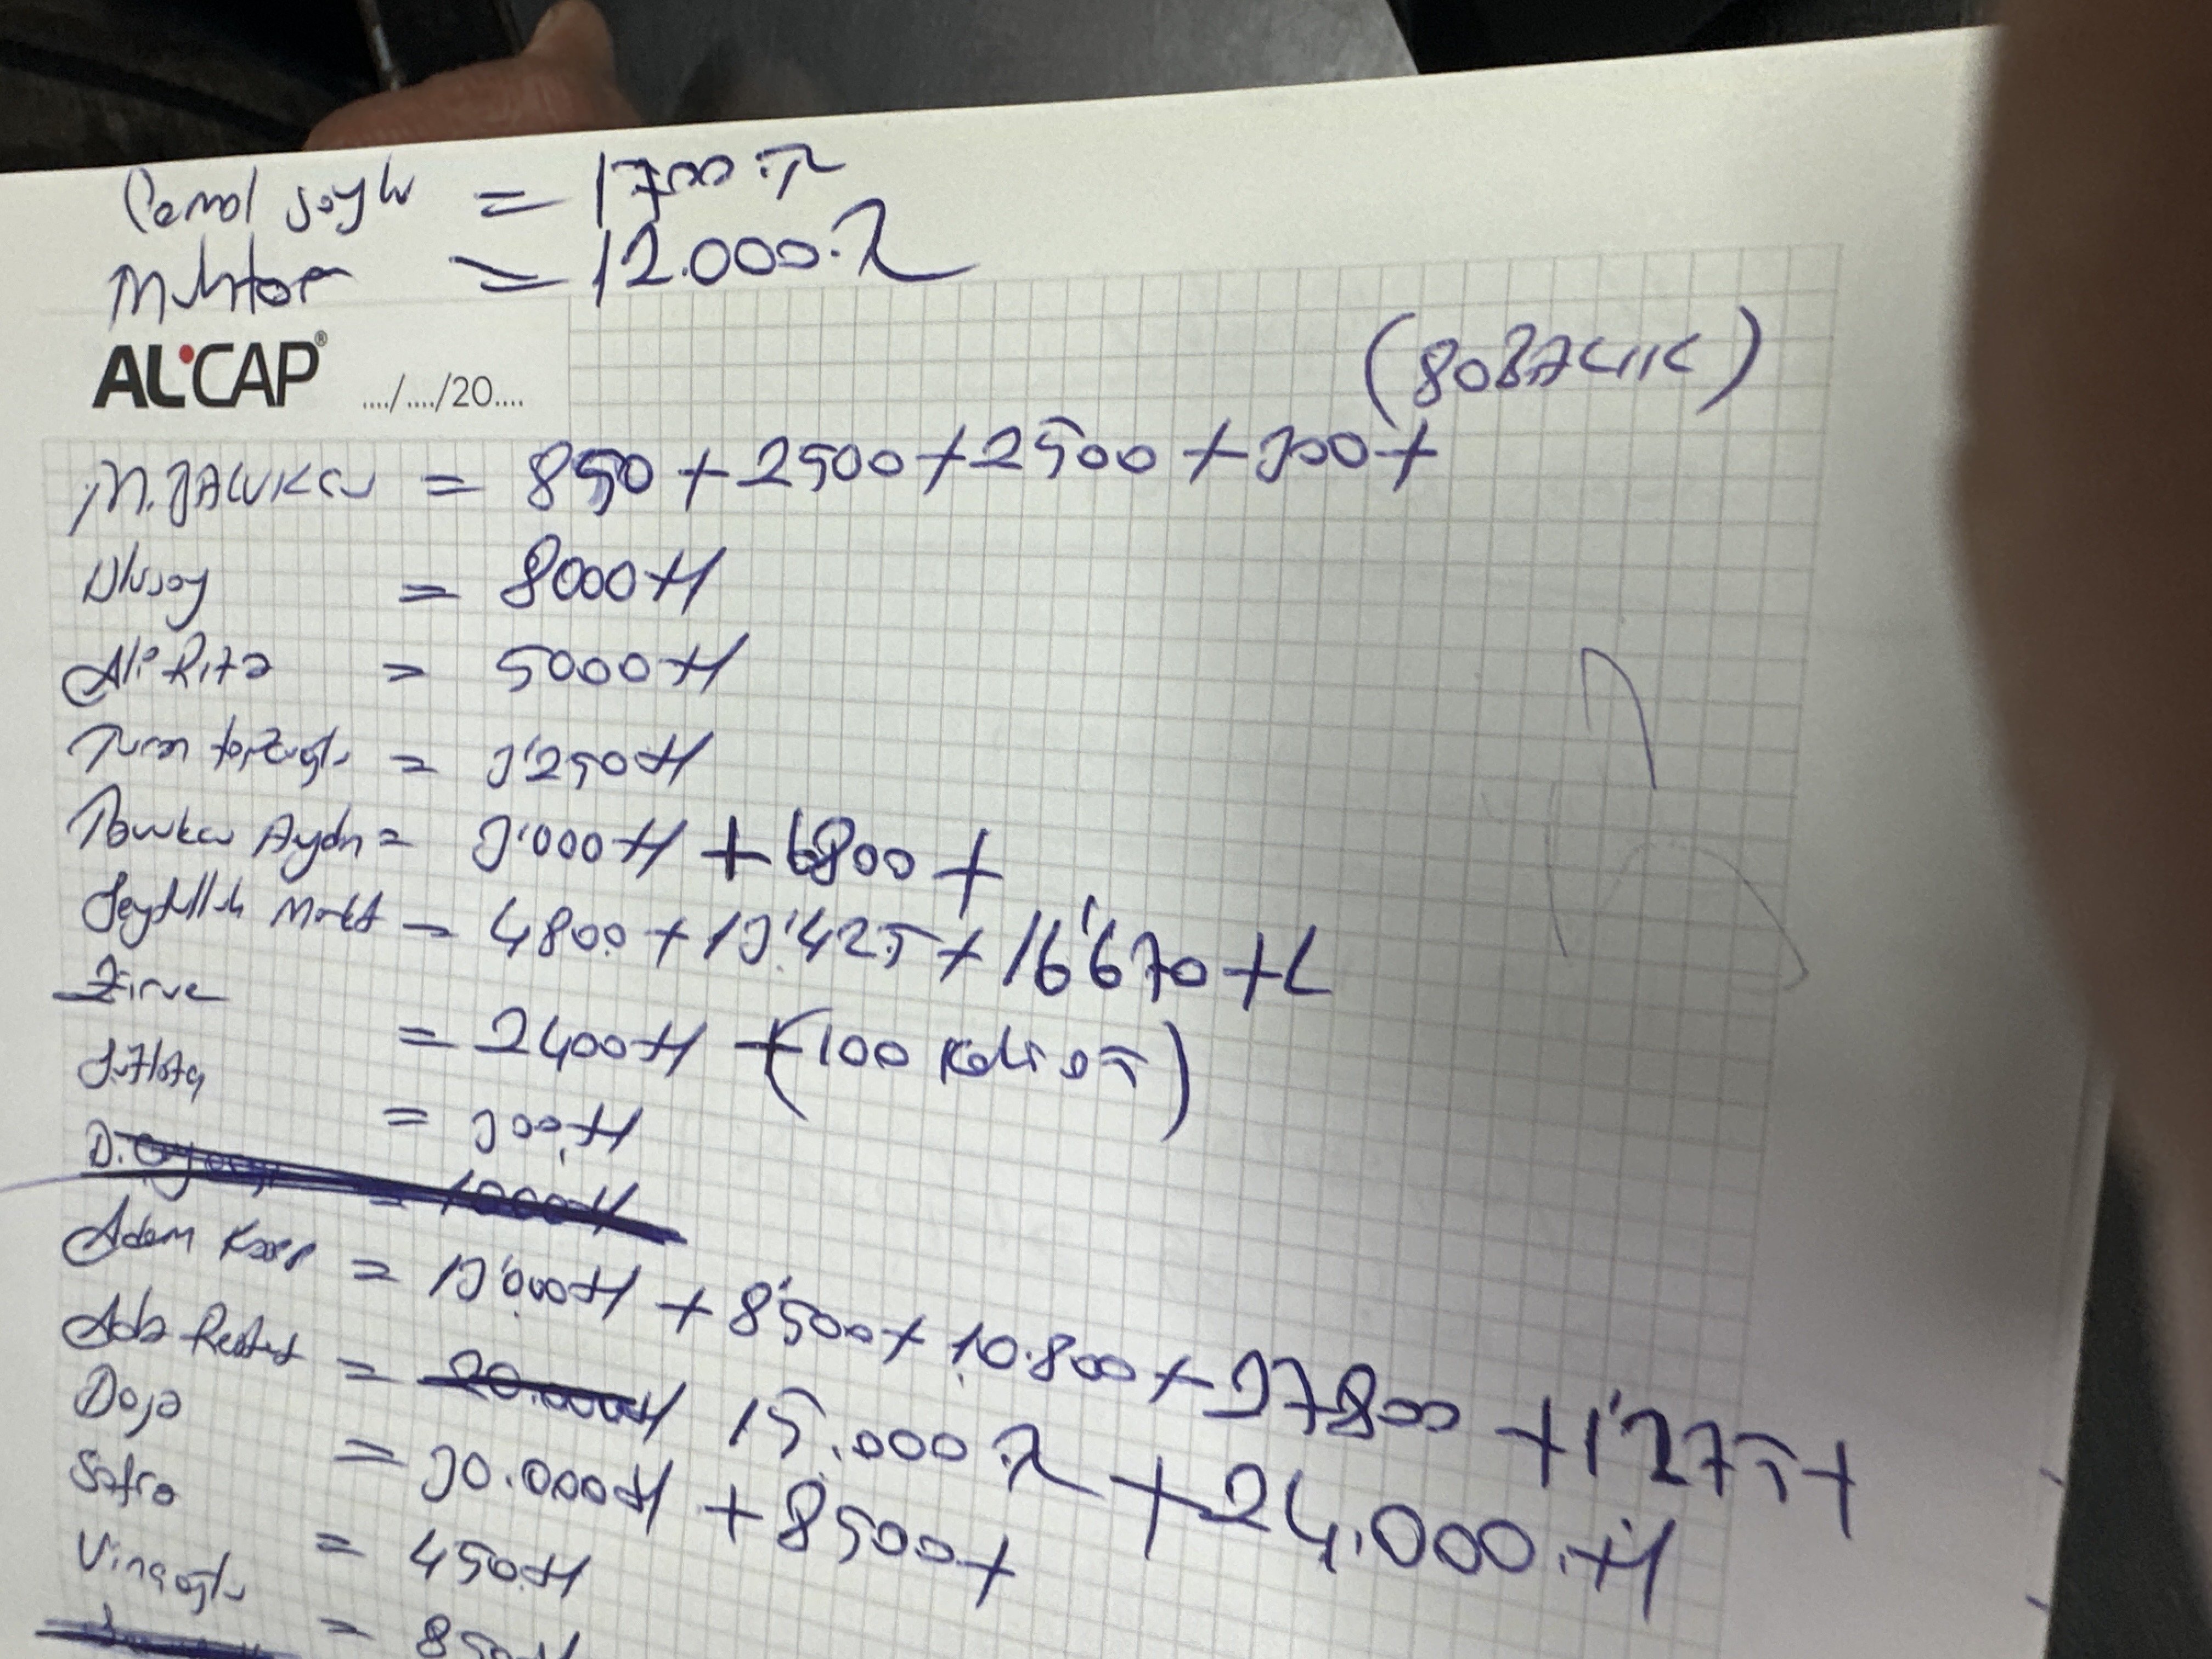 Cemal Soylu = 1700.TL
Muhtar = 12.000.TL
ALCAP® ..../..../20....
(80 BALIK)
M. BALIKCI = 850 + 2500 + 2500 + 300 +
Ulusoy = 8000 tl
Ali Rıza = 5000 tl
Turan = 3'250 tl
Balıkcı Aydın = 3'000 tl + 6800 +
Seyfullah Market = 4800 + 13'425 + 16'670 + L
Zirve = 2400 tl + (100 koli)
= 300 tl
D. = 1000 tl
Adem = 13'000 tl + 8'500 + 10.800 + 37800 + 1'275 +
Ada Restant = 20.000 tl 15.000 TL + 24.000.tl
Doğa = 30.000 tl + 8500 +
Safra = 450 tl
= 850 tl